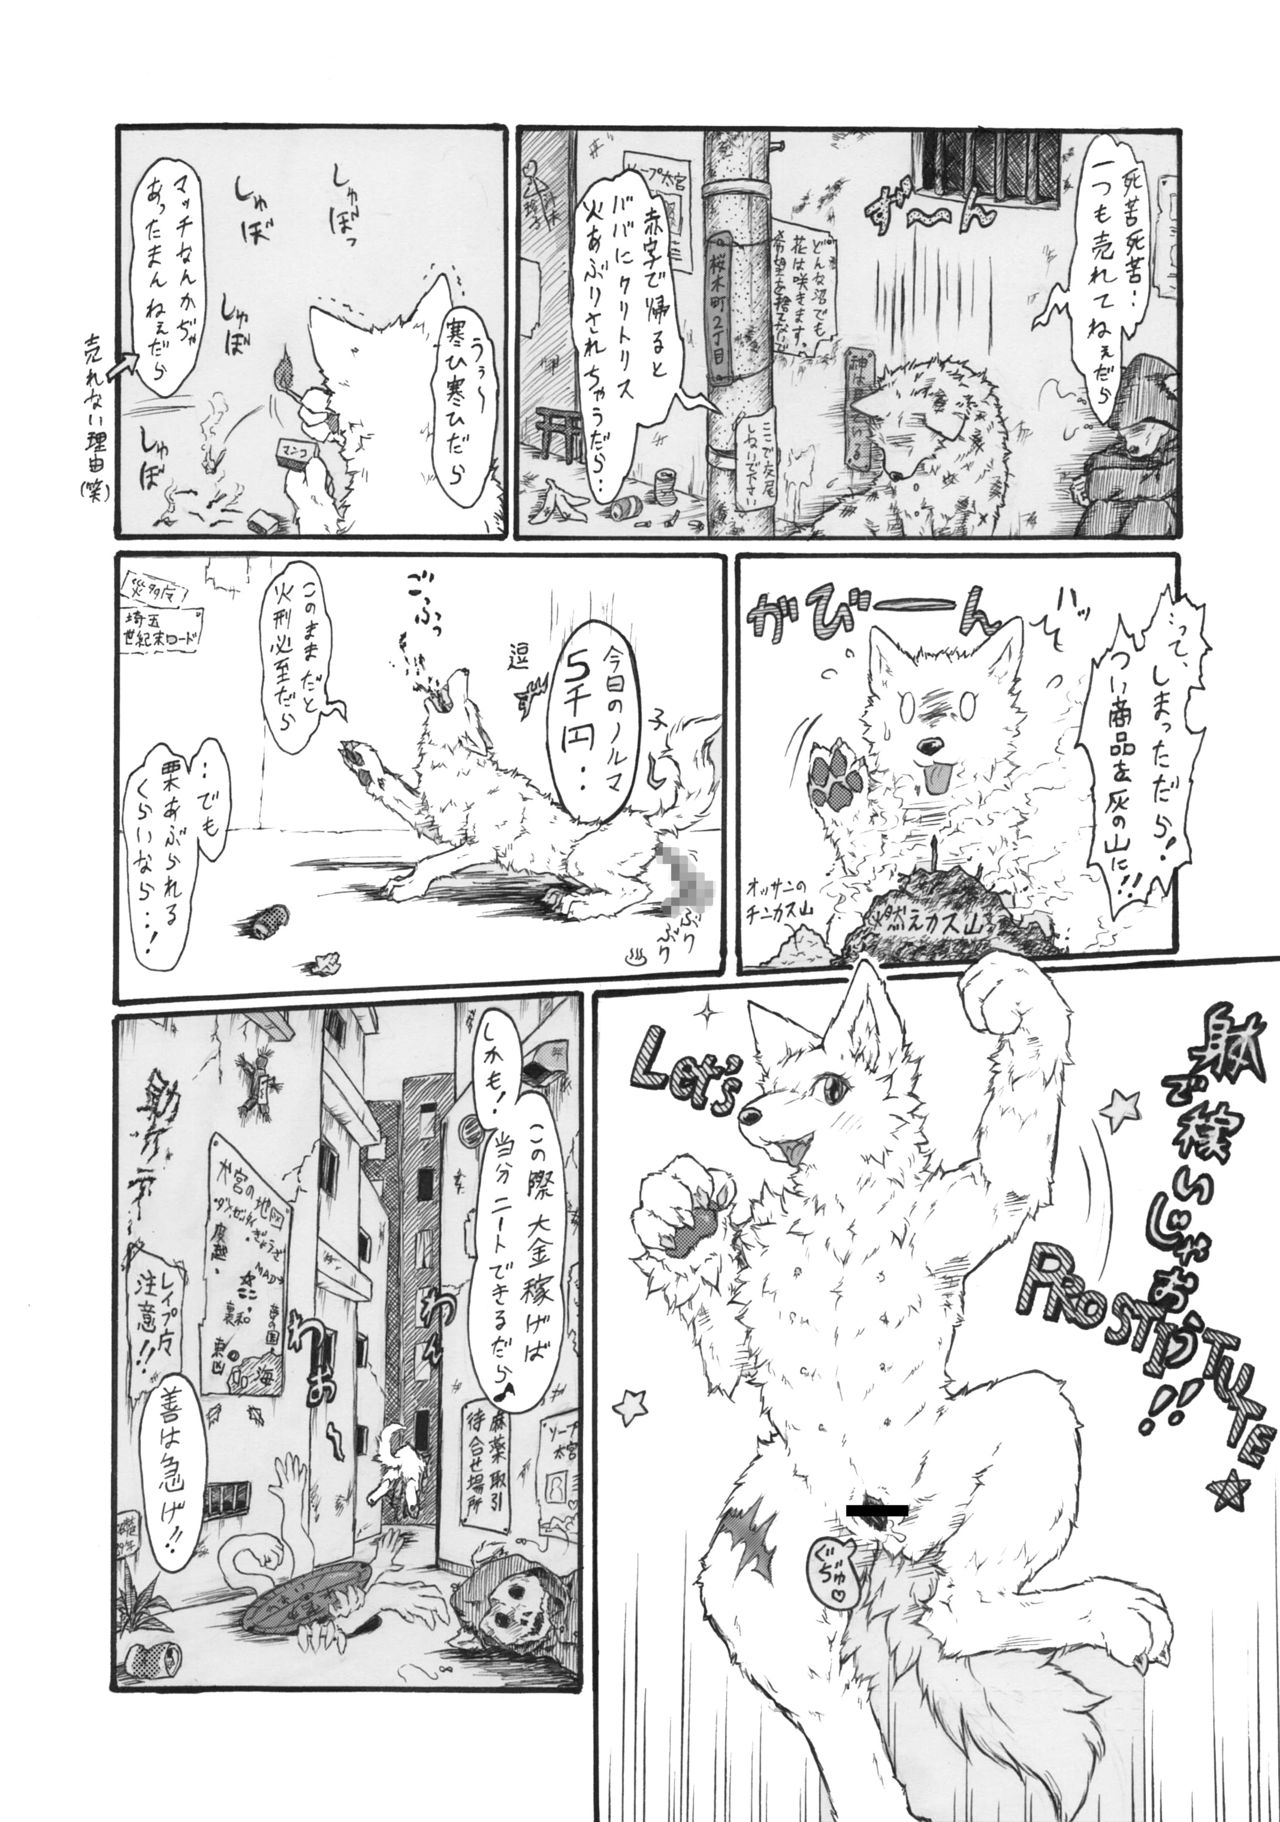 死苦死苦‥
一つも売れてねぇだら
ず〜〜ん
どんな沼でも
花は咲きます。
希望を捨てないで
赤字で帰ると
ババにクリトリス
火あぶりされちゃうだら‥
桜木町2丁目
ここで交尾
しないで下さい
ソープ大宮
うぅ〜
寒ひ寒ひだら
しゅぼっ
しゅぼ
しゅぼ
しゅぼ
マンコ
マッチなんかぢゃ
あったまんねぇだら
売れない理由
(笑)
‥って、しまっただら!
つい商品を灰の山に!!
がびーん
燃えカス山
オッサンの
チンカス山
今日のノルマ
5千円‥
ごふっ
逗子
ぶりぶり
このままだと
火刑必至だら
‥でも
栗あぶられる
くらいなら‥!
災多戸
埼玉
世紀末ロード
身体で稼いじゃおう!!
Let's
PROSTITUTE☆
ぐちゅ♡
この際大金稼げば
しかも!
当分ニートできるだら♪
わん
わお〜
麻薬取引
待合せ場所
ソープ
大宮
大宮の地図
レイプ犬
注意!!
善は急げ!!